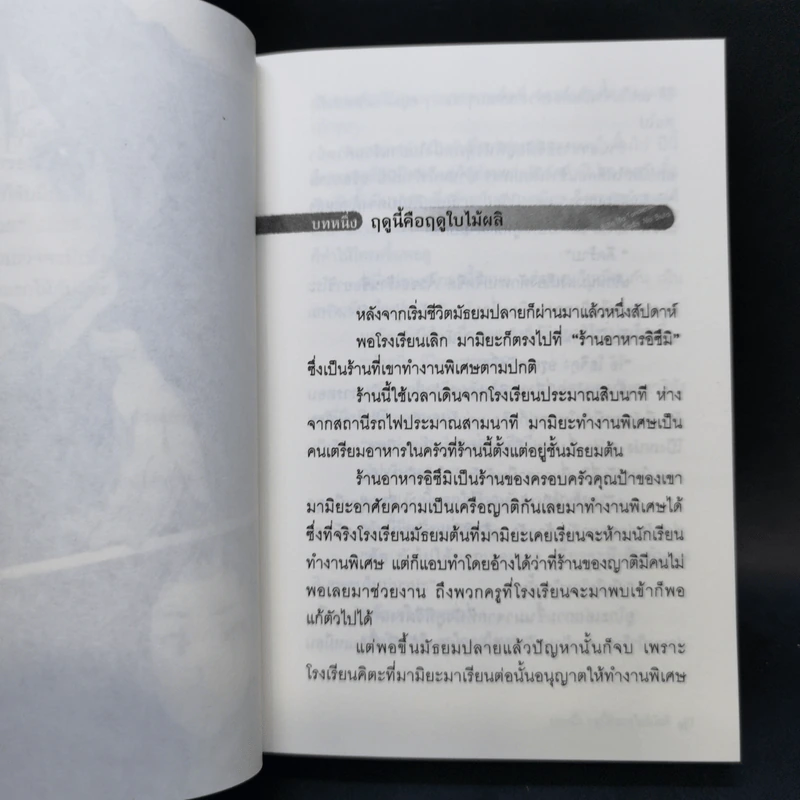 บทหนึ่ง ฤดูนี้คือฤดูใบไม้ผลิ
หลังจากเริ่มชีวิตมัธยมปลายก็ผ่านมาแล้วหนึ่งสัปดาห์
พอโรงเรียนเลิก มามิยะก็ตรงไปที่ “ร้านอาหารอิซึมิ”
ซึ่งเป็นร้านที่เขาทำงานพิเศษตามปกติ
ร้านนี้ใช้เวลาเดินจากโรงเรียนประมาณสิบนาที ห่าง
จากสถานีรถไฟประมาณสามนาที มามิยะทำงานพิเศษเป็น
คนเตรียมอาหารในครัวที่ร้านนี้ตั้งแต่อยู่ชั้นมัธยมต้น
ร้านอาหารอิซึมิเป็นร้านของครอบครัวคุณป้าของเขา
มามิยะอาศัยความเป็นเครือญาติกันเลยมาทำงานพิเศษได้
ซึ่งที่จริงโรงเรียนมัธยมต้นที่มามิยะเคยเรียนจะห้ามนักเรียน
ทำงานพิเศษ แต่ก็แอบทำโดยอ้างได้ว่าที่ร้านของญาติมีคนไม่
พอเลยมาช่วยงาน ถึงพวกครูที่โรงเรียนจะมาพบเข้าก็พอ
แก้ตัวไปได้
แต่พอขึ้นมัธยมปลายแล้วปัญหานั้นก็จบ เพราะ
โรงเรียนคิตะที่มามิยะมาเรียนต่อนั้นอนุญาตให้ทำงานพิเศษ